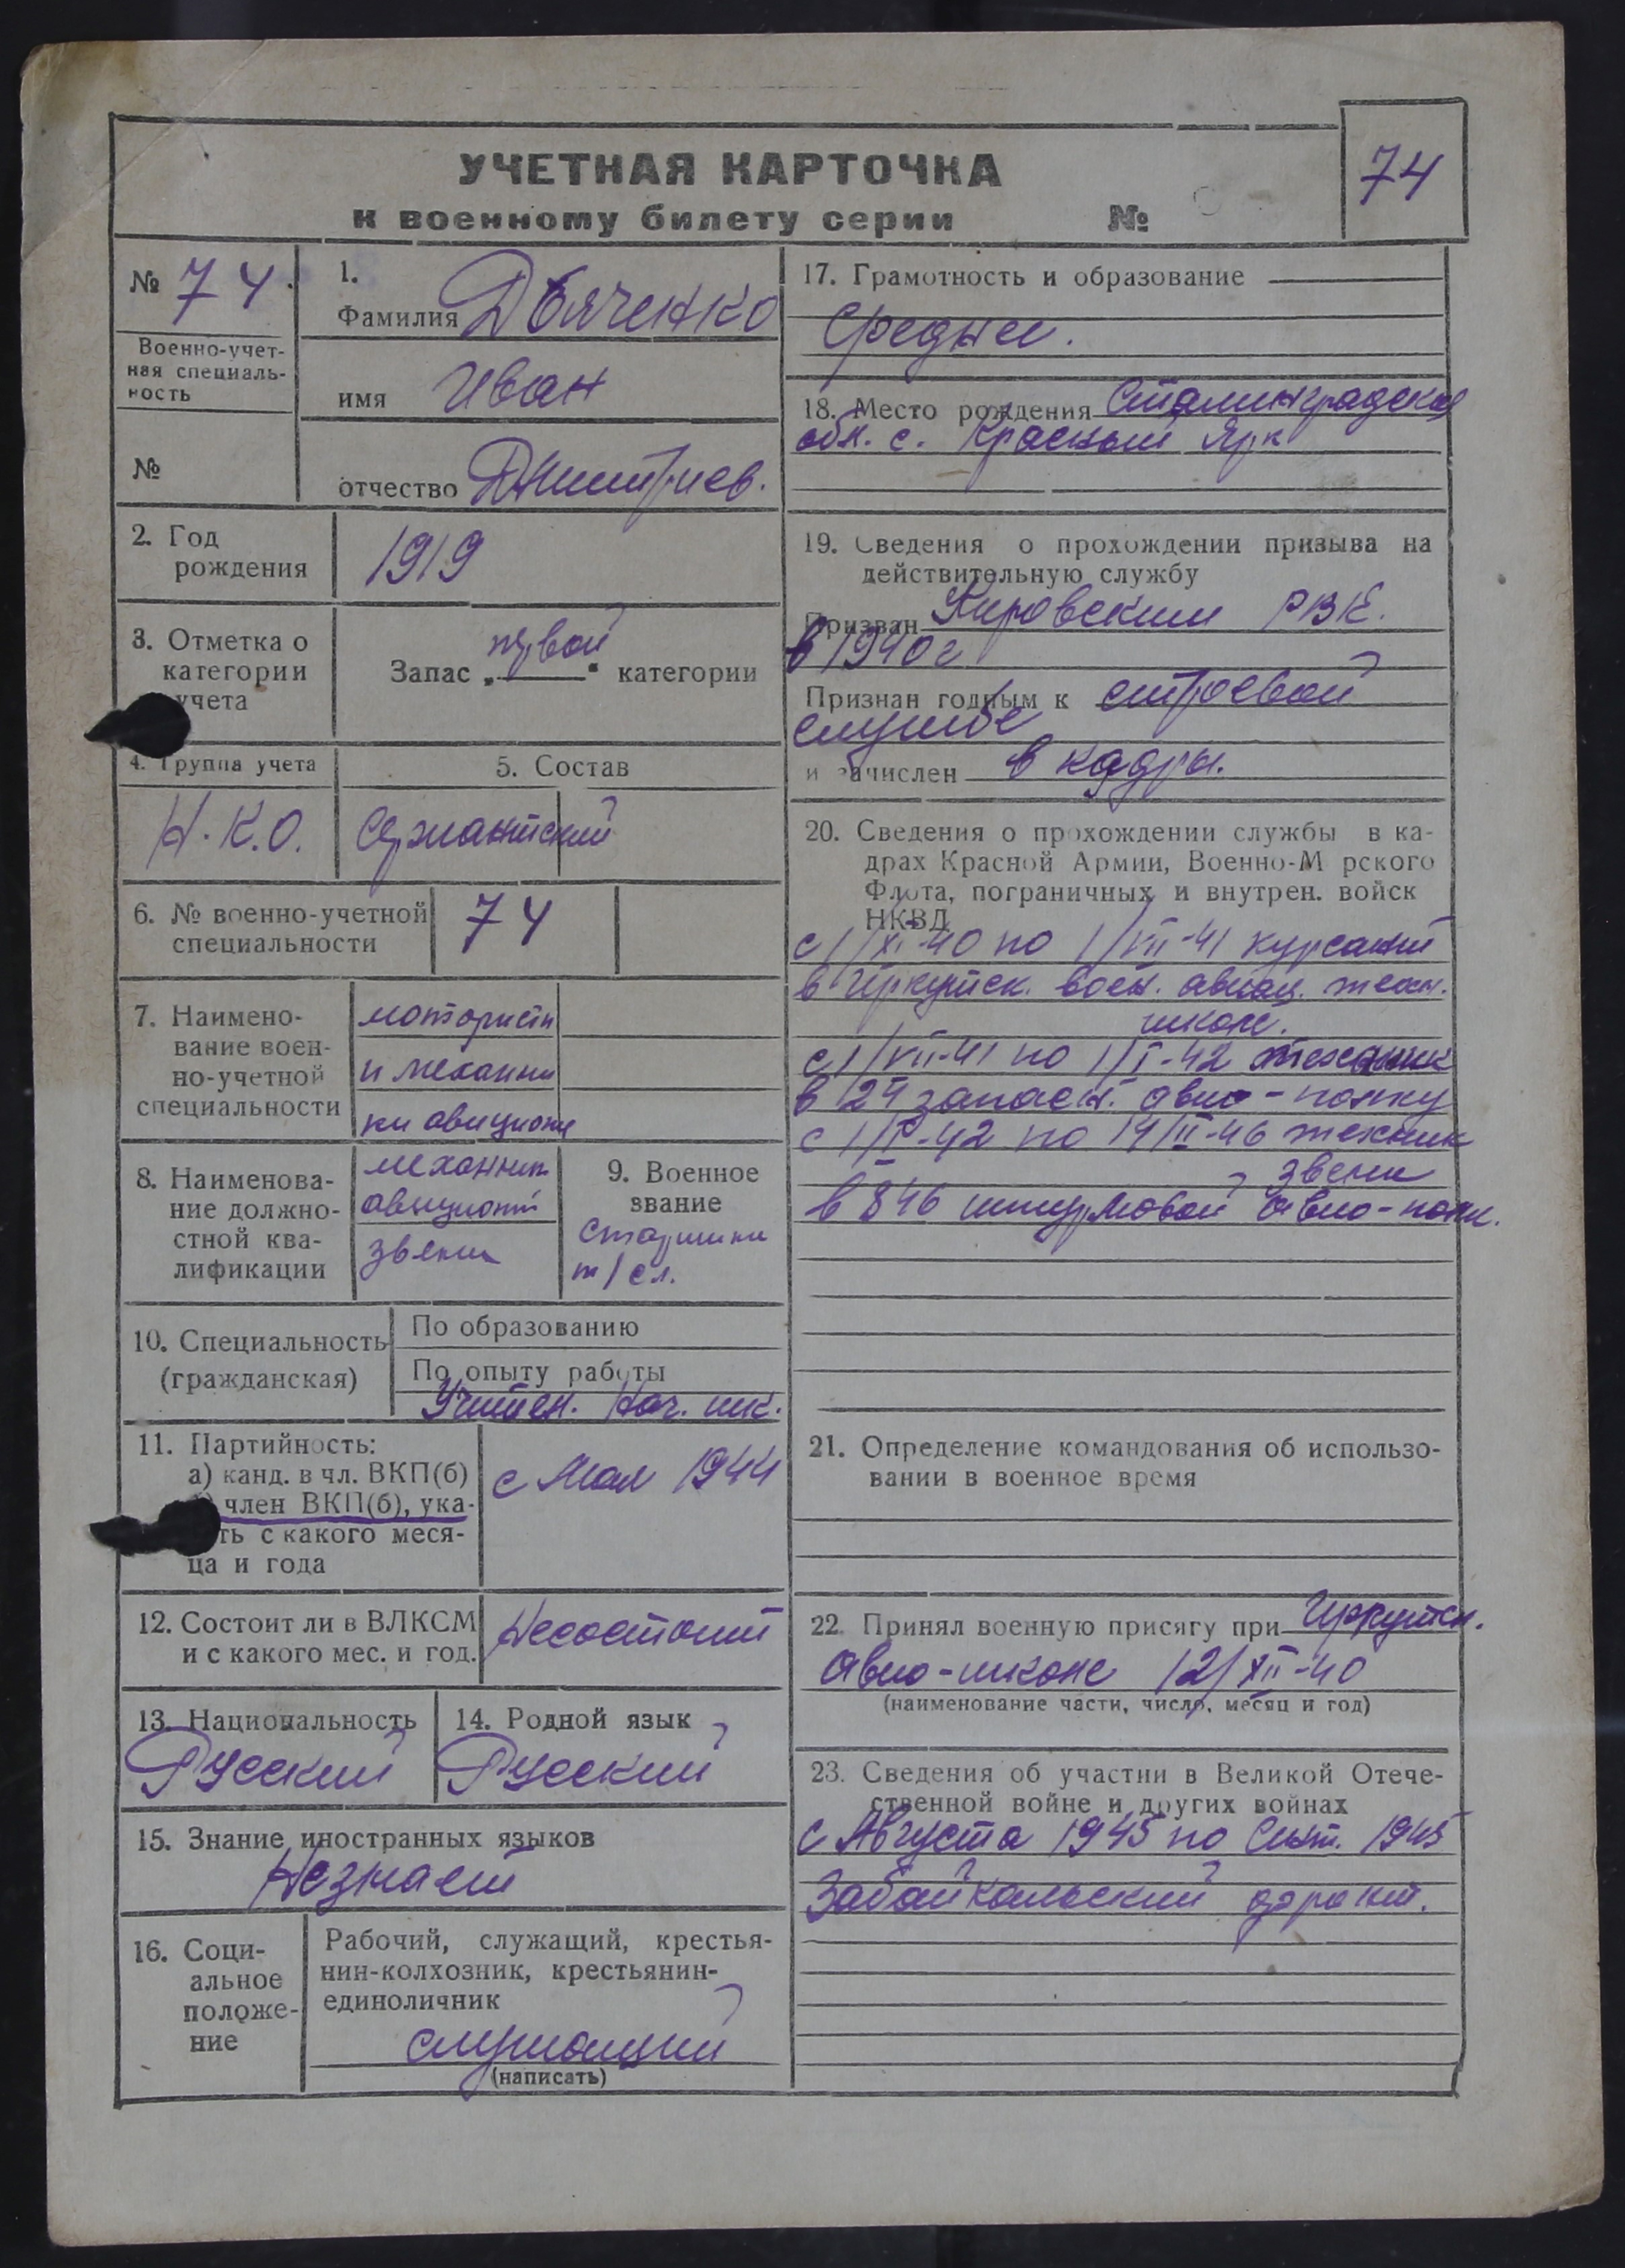 УЧЕТНАЯ КАРТОЧКА
к военному билету серии №
74
№ 74.
Военно-учет-
ная специаль-
ность
№
1.
Фамилия Дьяченко
имя Иван
отчество Дмитриев.
2. Год
рождения
1919
3. Отметка о
категории
учета
первой
Запас „ “ категории
4. Группа учета
Н.К.О.
5. Состав
Сержантский
6. № военно-учетной
специальности
74
7. Наимено-
вание воен-
но-учетной
специальности
мотористы
и механи
ки авиацион
8. Наименова-
ние должно-
стной ква-
лификации
механик
авиацион
звена
9. Военное
звание
Старшина
т/сл.
10. Специальность
(гражданская)
По образованию
По опыту работы
Учител. Нач. шк.
11. Партийность:
а) канд. в чл. ВКП(б)
член ВКП(б), ука-
ть с какого меся-
ца и года
с Мая 1944
12. Состоит ли в ВЛКСМ
и с какого мес. и год.
Несостоит
13. Национальность
Русский
14. Родной язык
Русский
15. Знание иностранных языков
Незнает
16. Соци-
альное
положе-
ние
Рабочий, служащий, крестья-
нин-колхозник, крестьянин-
единоличник
служащий
(написать)
17. Грамотность и образование
Среднее.
18. Место рождения Сталинградская
обл. с. Красный Яр
19. Сведения о прохождении призыва на
действительную службу
Призван Кировским РВК.
в 1940г
Признан годным к строевой
службе
и зачислен в кадры.
20. Сведения о прохождении службы в ка-
драх Красной Армии, Военно-М рского
Флота, пограничных и внутрен. войск
НКВД
с 1/XI-40 по 1/VII-41 курсант
в Иркутск. воен. авиац. техн.
школе.
с 1/VII-41 по 1/I-42 техник
в 24 запасн. авио-полку
с 1/I-42 по 14/III-46 техник
звена
в 846 штурмовой авио-полк.
21. Определение командования об использо-
вании в военное время
22. Принял военную присягу при Иркутск.
авио-школе 12/XII-40
(наименование части, число, месяц и год)
23. Сведения об участии в Великой Отече-
ственной войне и других войнах
с Августа 1945 по Сент. 1945
Забайкальский фронт.